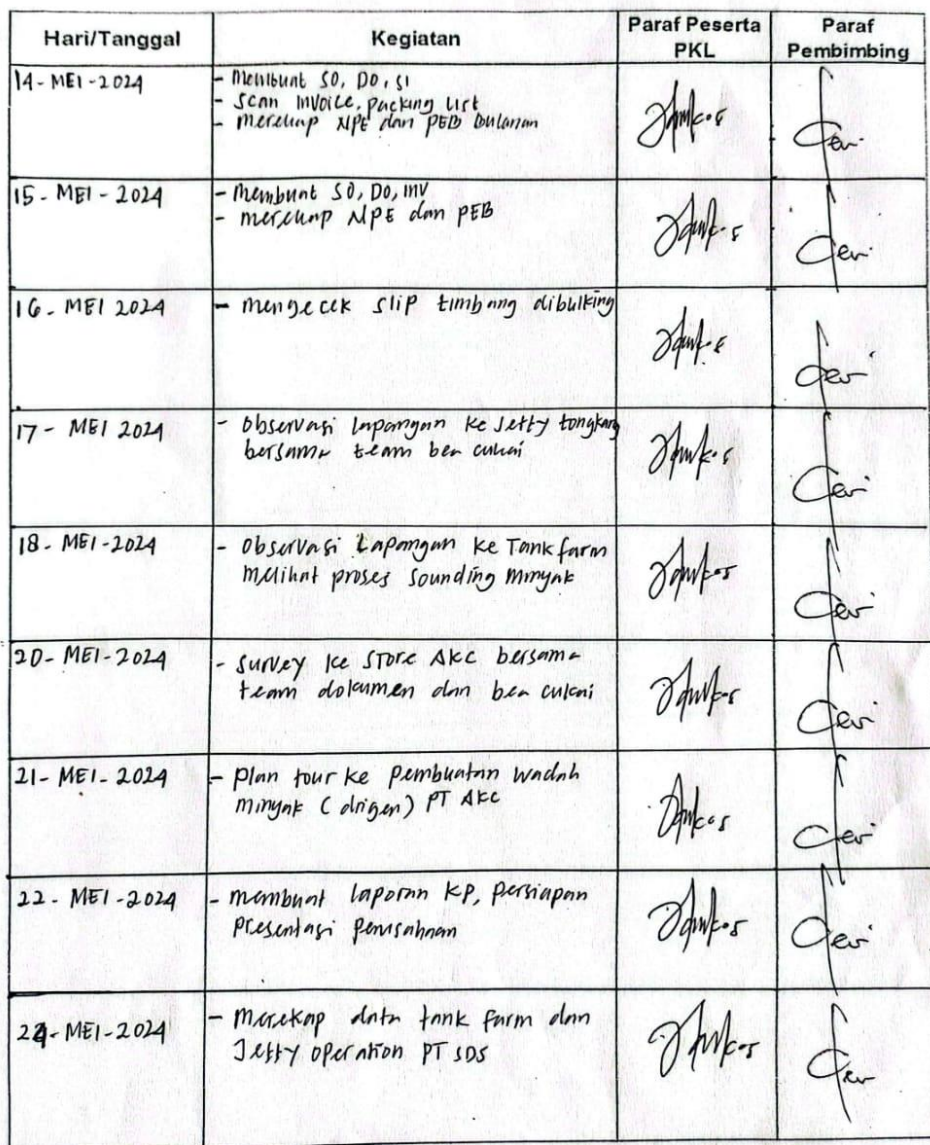 Hari/Tanggal Kegiatan Paraf Peserta PKL Paraf Pembimbing
14 - MEI - 2024
- Membuat SO, DO, SI
- Scan Invoice, packing list
- merekap NPE dan PEB bulanan
15 - MEI - 2024
- Membuat SO, DO, INV
- merekap NPE dan PEB
16 - MEI 2024
- mengecek slip timbang dibulking
17 - MEI 2024
- Observasi Lapangan ke Jetty tongkang
bersama team bea cukai
18 - MEI - 2024
- Observasi Lapangan ke Tank farm
melihat proses sounding minyak
20 - MEI - 2024
- survey ke store AKC bersama
team dokumen dan bea cukai
21 - MEI - 2024
- plan tour ke pembuatan wadah
minyak (drigen) PT AKC
22 - MEI - 2024
- membuat laporan KP, persiapan
presentasi perusahaan
- Merekap data tank farm dan
Jetty operation PT SDS